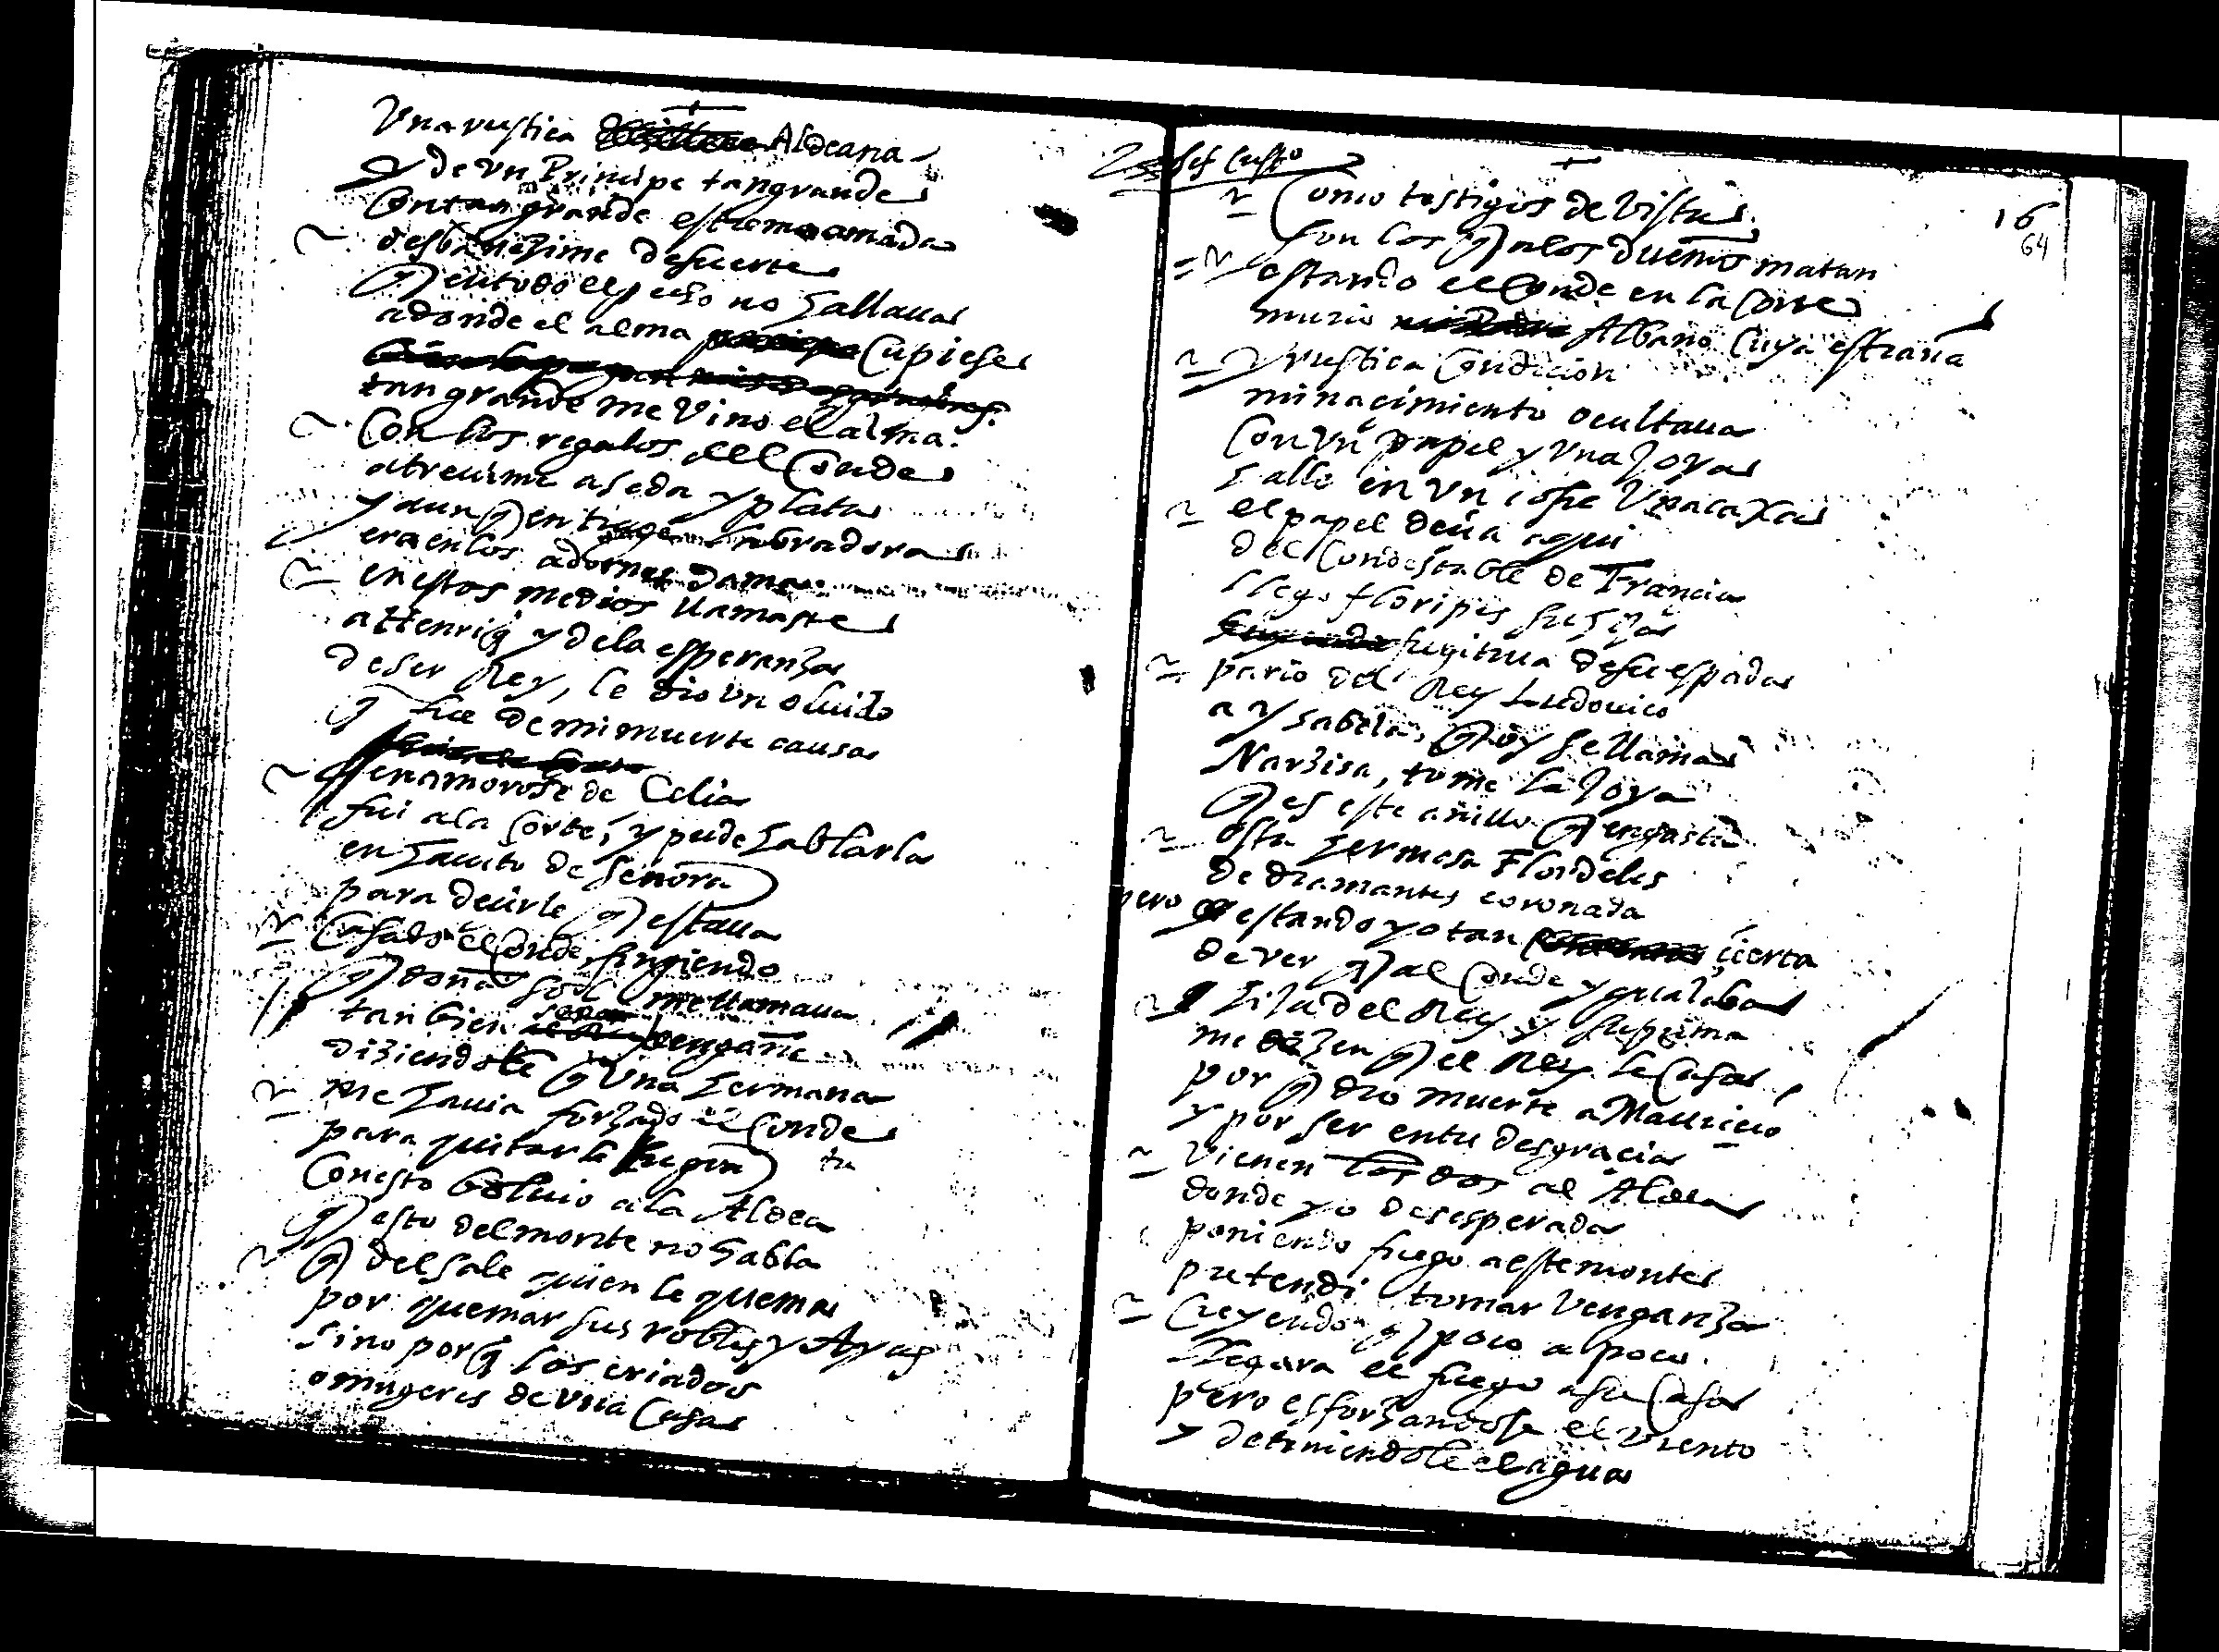 Una rustica Aldeana
y de Vn Principe tan grande
Con tan grande estremo amada
desbanezime de suerte
q en todo el pecho no hallaua
adonde el alma Cupiese
tan grande me Vino el alma.
Con los regalos del Conde
atreuime a seda y plata
y aunq en trage labradora
era en los adornos dama
en estos medios llamaste
a Henriq y de la esperanza
de ser Rey, le dio vn oluido
q fue de mi muerte causa
enamorose de Celia
fui a la Corte, y pude hablarla
en hauito de señora
para deçirle q estaua
Casado el Conde, fingiendo
q doña Sol me llamaua
tanbien engañe
diziendole q Vna hermana
me hauia forzado el Conde
para quitarle tu graçia
Con esto boluio a la Aldea
q esto del monte no habla
q del sale quien le quema
por quemar sus robles y Ayas
sino por q los criados
o mugeres de vna Casa
16
64
Como testigos de vista
son los q a los dueños matan
estando el Conde en la Corte
murio Albano Cuya estraña
y rustica Condiçion
mi naçimiento ocultaua
Con Vn papel y Vna Joya
halle en vn cofre Vna caxa
el papel deçia aqui
del Condestable de Françia
llego floripes su hija
fugitiua de su espada
pario del Rey Ludouico
a ysabela, q oy se llama
Narzisa, tome la Joya
q es este anillo q engasta
esta hermosa Flordelis
de diamantes coronada
pero estando yo tan çierta
de ver q al Conde ygualaba
hija del Rey y su prima
me dizen q el Rey le Casa
por q dio muerte a Mauriçio
y por ser en tu desgraçia
Vienen los dos al Aldea
donde yo desesperada
poniendo fuego a este monte
pretendi tomar Venganza
Creyendo q poco a poco
llegara el fuego a su Casa
pero esforzandose el viento
y deteniendole el agua